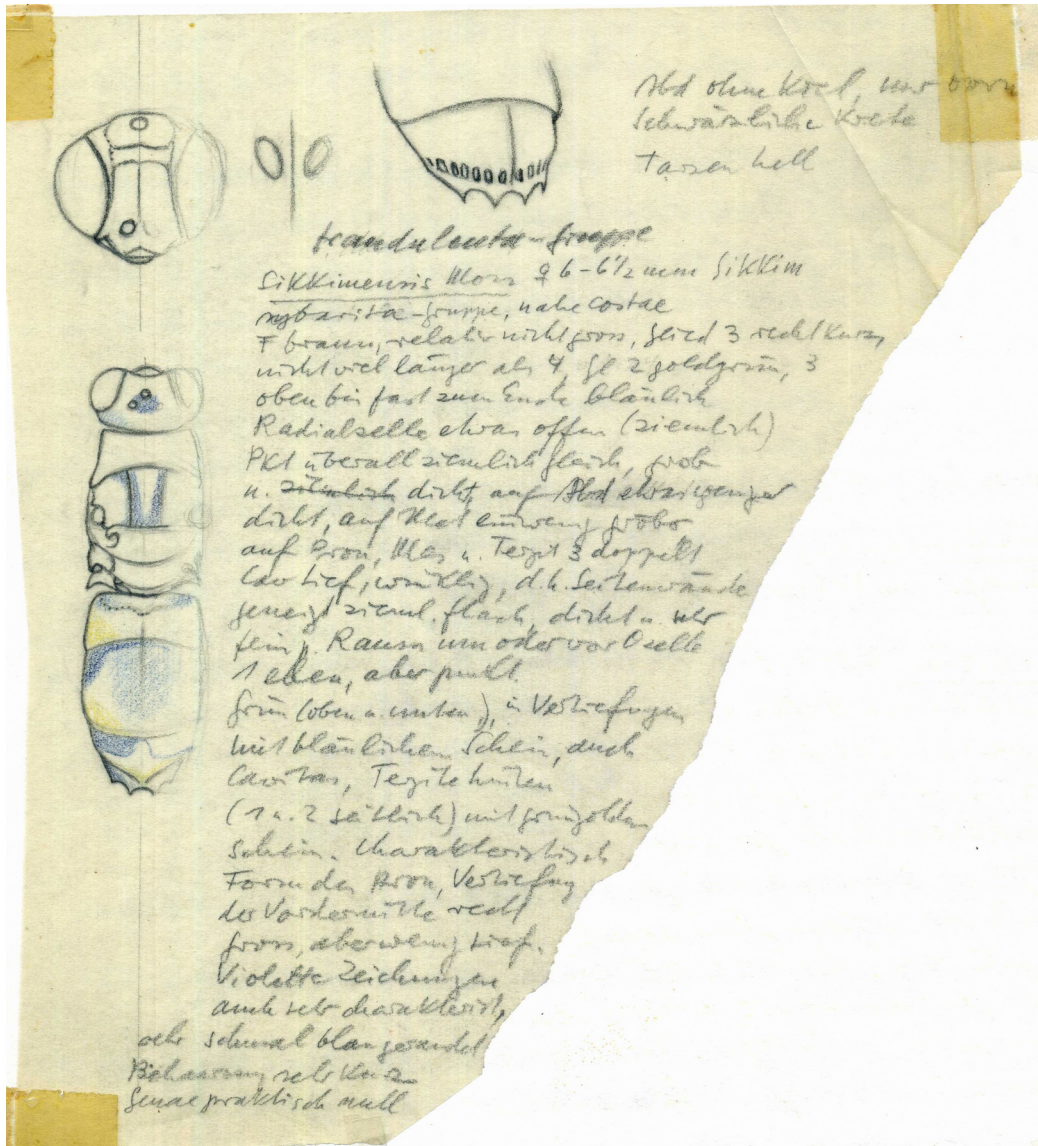 Abd ohne Kiel, nur vorn
schwärzliche Kiele
Tarsen hell
-Gruppe
Sikkimensis Mocs ♀ 6-6½ mm Sikkim
sybarita-Gruppe, nahe costae
F braun, relativ nicht gross, Glied 3 recht kurz,
nicht viel länger als 4, Gl 2 goldgrün, 3
oben bis fast zum Ende bläulich
Radialzelle etwas offen (ziemlich)
PKt überall ziemlich gleich, grob
u. ziemlich dicht, auf Abd etwas weniger
dicht, auf Met ein wenig grober
auf Pron, Mes u. Tergit 3 doppelt
Cav tief, d.h. Seitenwände
geneigt zieml. flach, dicht u. sehr
fein p. Raum um oder vor Ocelle
1 eben, aber punkt.
Grün (oben u. unten), in Vertiefungen
mit bläulichem Schein, auch
Cavitas, Tergite hinten
(1 u. 2 seitlich) mit grüngoldem
Schein. Charakteristisch
Form des Pron, Vertiefung
der Vordermitte recht
gross, aber wenig tief.
Violette Zeichnungen
auch sehr charakterist,
sehr schmal blau gerandet
Behaarung sehr kurz
Genae praktisch null